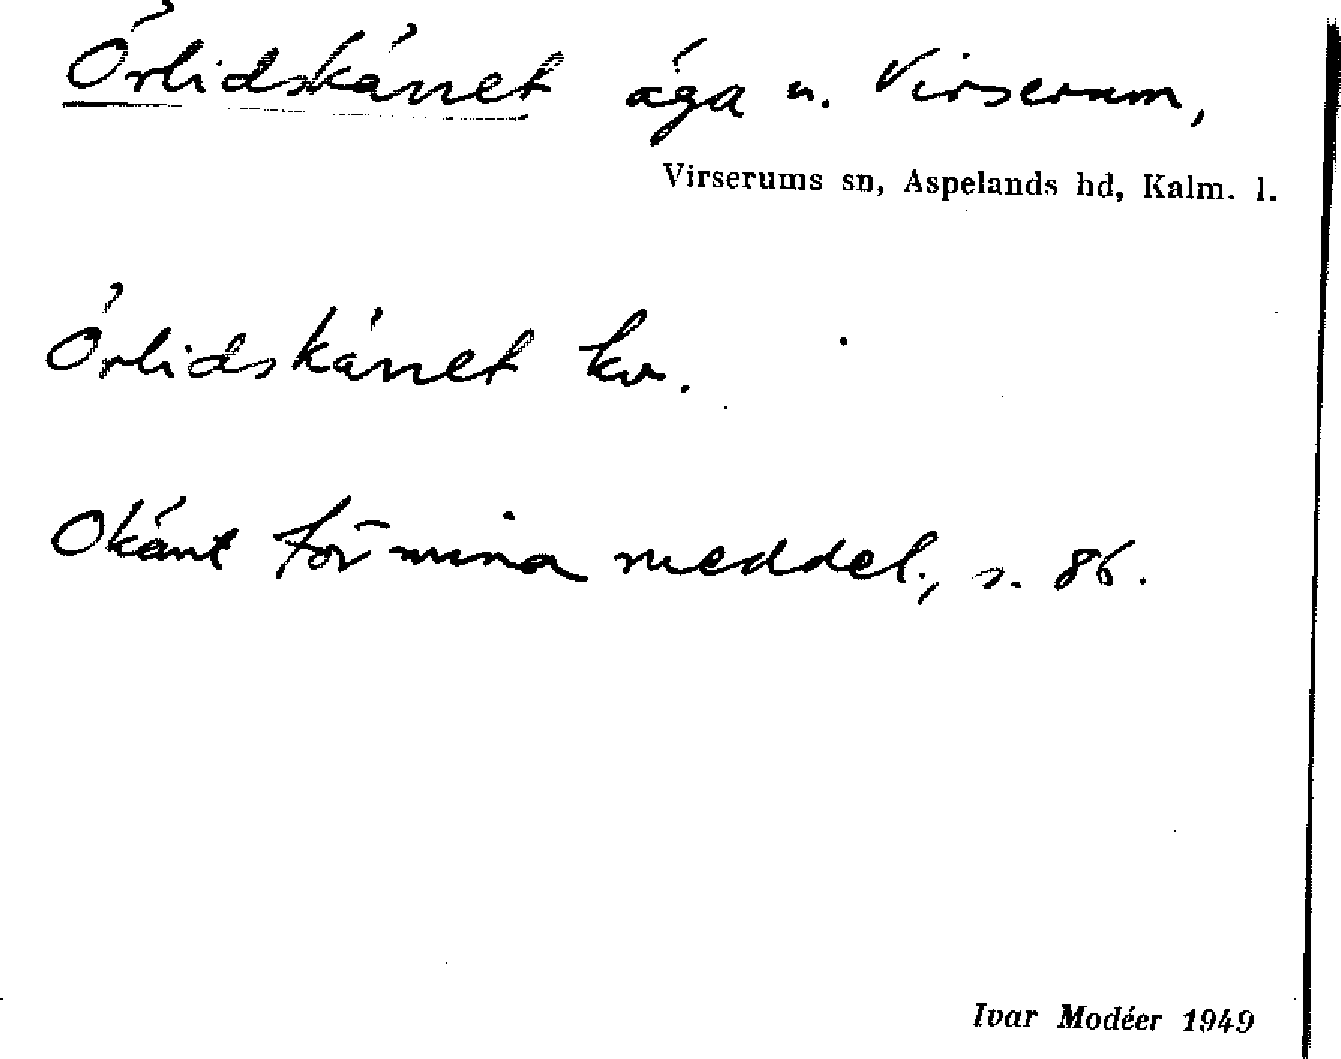 Örlidskärret äga u. Virserum,
Virserums sn, Aspelands hd, Kalm. l.
Örlidskärret kv.
Okänt för mina meddel., s. 86.
Ivar Modéer 1949